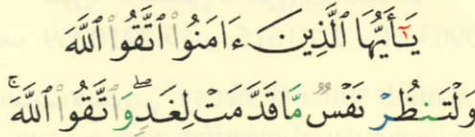 يَـٰٓأَيُّهَا ٱلَّذِينَ ءَامَنُوا۟ ٱتَّقُوا۟ ٱللَّهَ
وَلْتَنظُرْ نَفْسٌ مَّا قَدَّمَتْ لِغَدٍۖ وَٱتَّقُوا۟ ٱللَّهَۚ